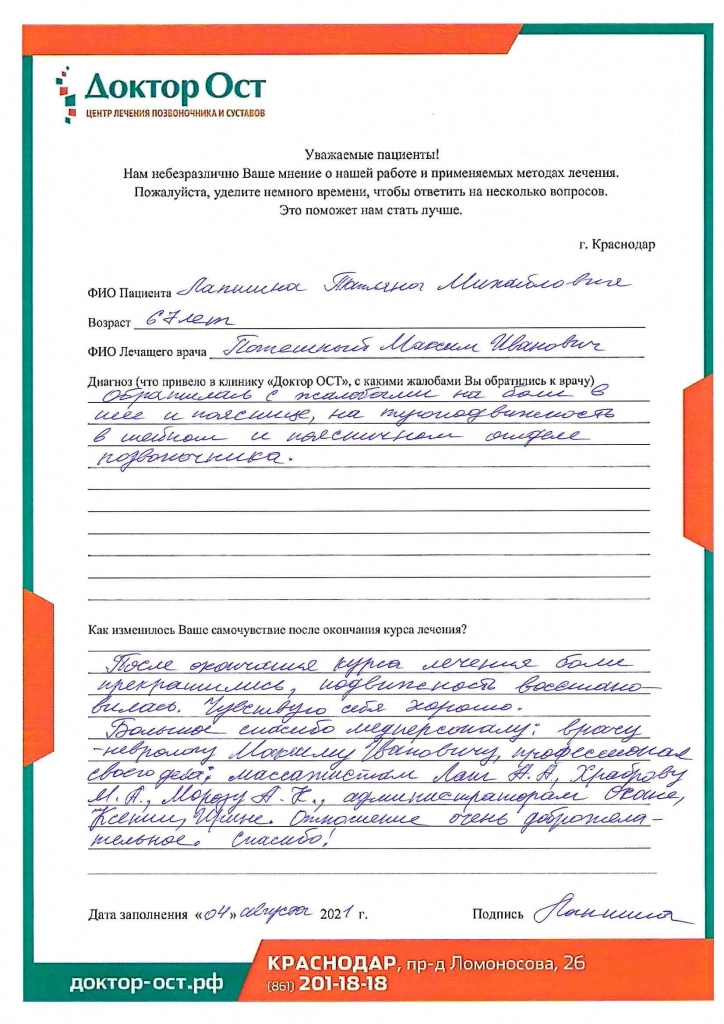 Доктор Ост
ЦЕНТР ЛЕЧЕНИЯ ПОЗВОНОЧНИКА И СУСТАВОВ
Уважаемые пациенты!
Нам небезразлично Ваше мнение о нашей работе и применяемых методах лечения.
Пожалуйста, уделите немного времени, чтобы ответить на несколько вопросов.
Это поможет нам стать лучше.
г. Краснодар
ФИО Пациента Лапшина Татьяна Михайловна
Возраст 67 лет
ФИО Лечащего врача Потешный Максим Иванович
Диагноз (что привело в клинику «Доктор ОСТ», с какими жалобами Вы обратились к врачу)
Обратилась с жалобами на боли в
шее и пояснице, на тугоподвижность
в шейном и поясничном отделе
позвоночника.
Как изменилось Ваше самочувствие после окончания курса лечения?
После окончания курса лечения боли
прекратились, подвижность восстано-
вилась. Чувствую себя хорошо.
Большое спасибо медперсоналу: врачу
-неврологу Максиму Ивановичу, профессионал
своего дела; массажистам А.А., Храброву
М.А., Морозу А.К., администраторам
Ксении, Ирине. Отношение очень доброжела-
тельное. Спасибо!
Дата заполнения «04» августа 2021 г.
Подпись Лапшина
доктор-ост.рф
КРАСНОДАР, пр-д Ломоносова, 26
(861) 201-18-18